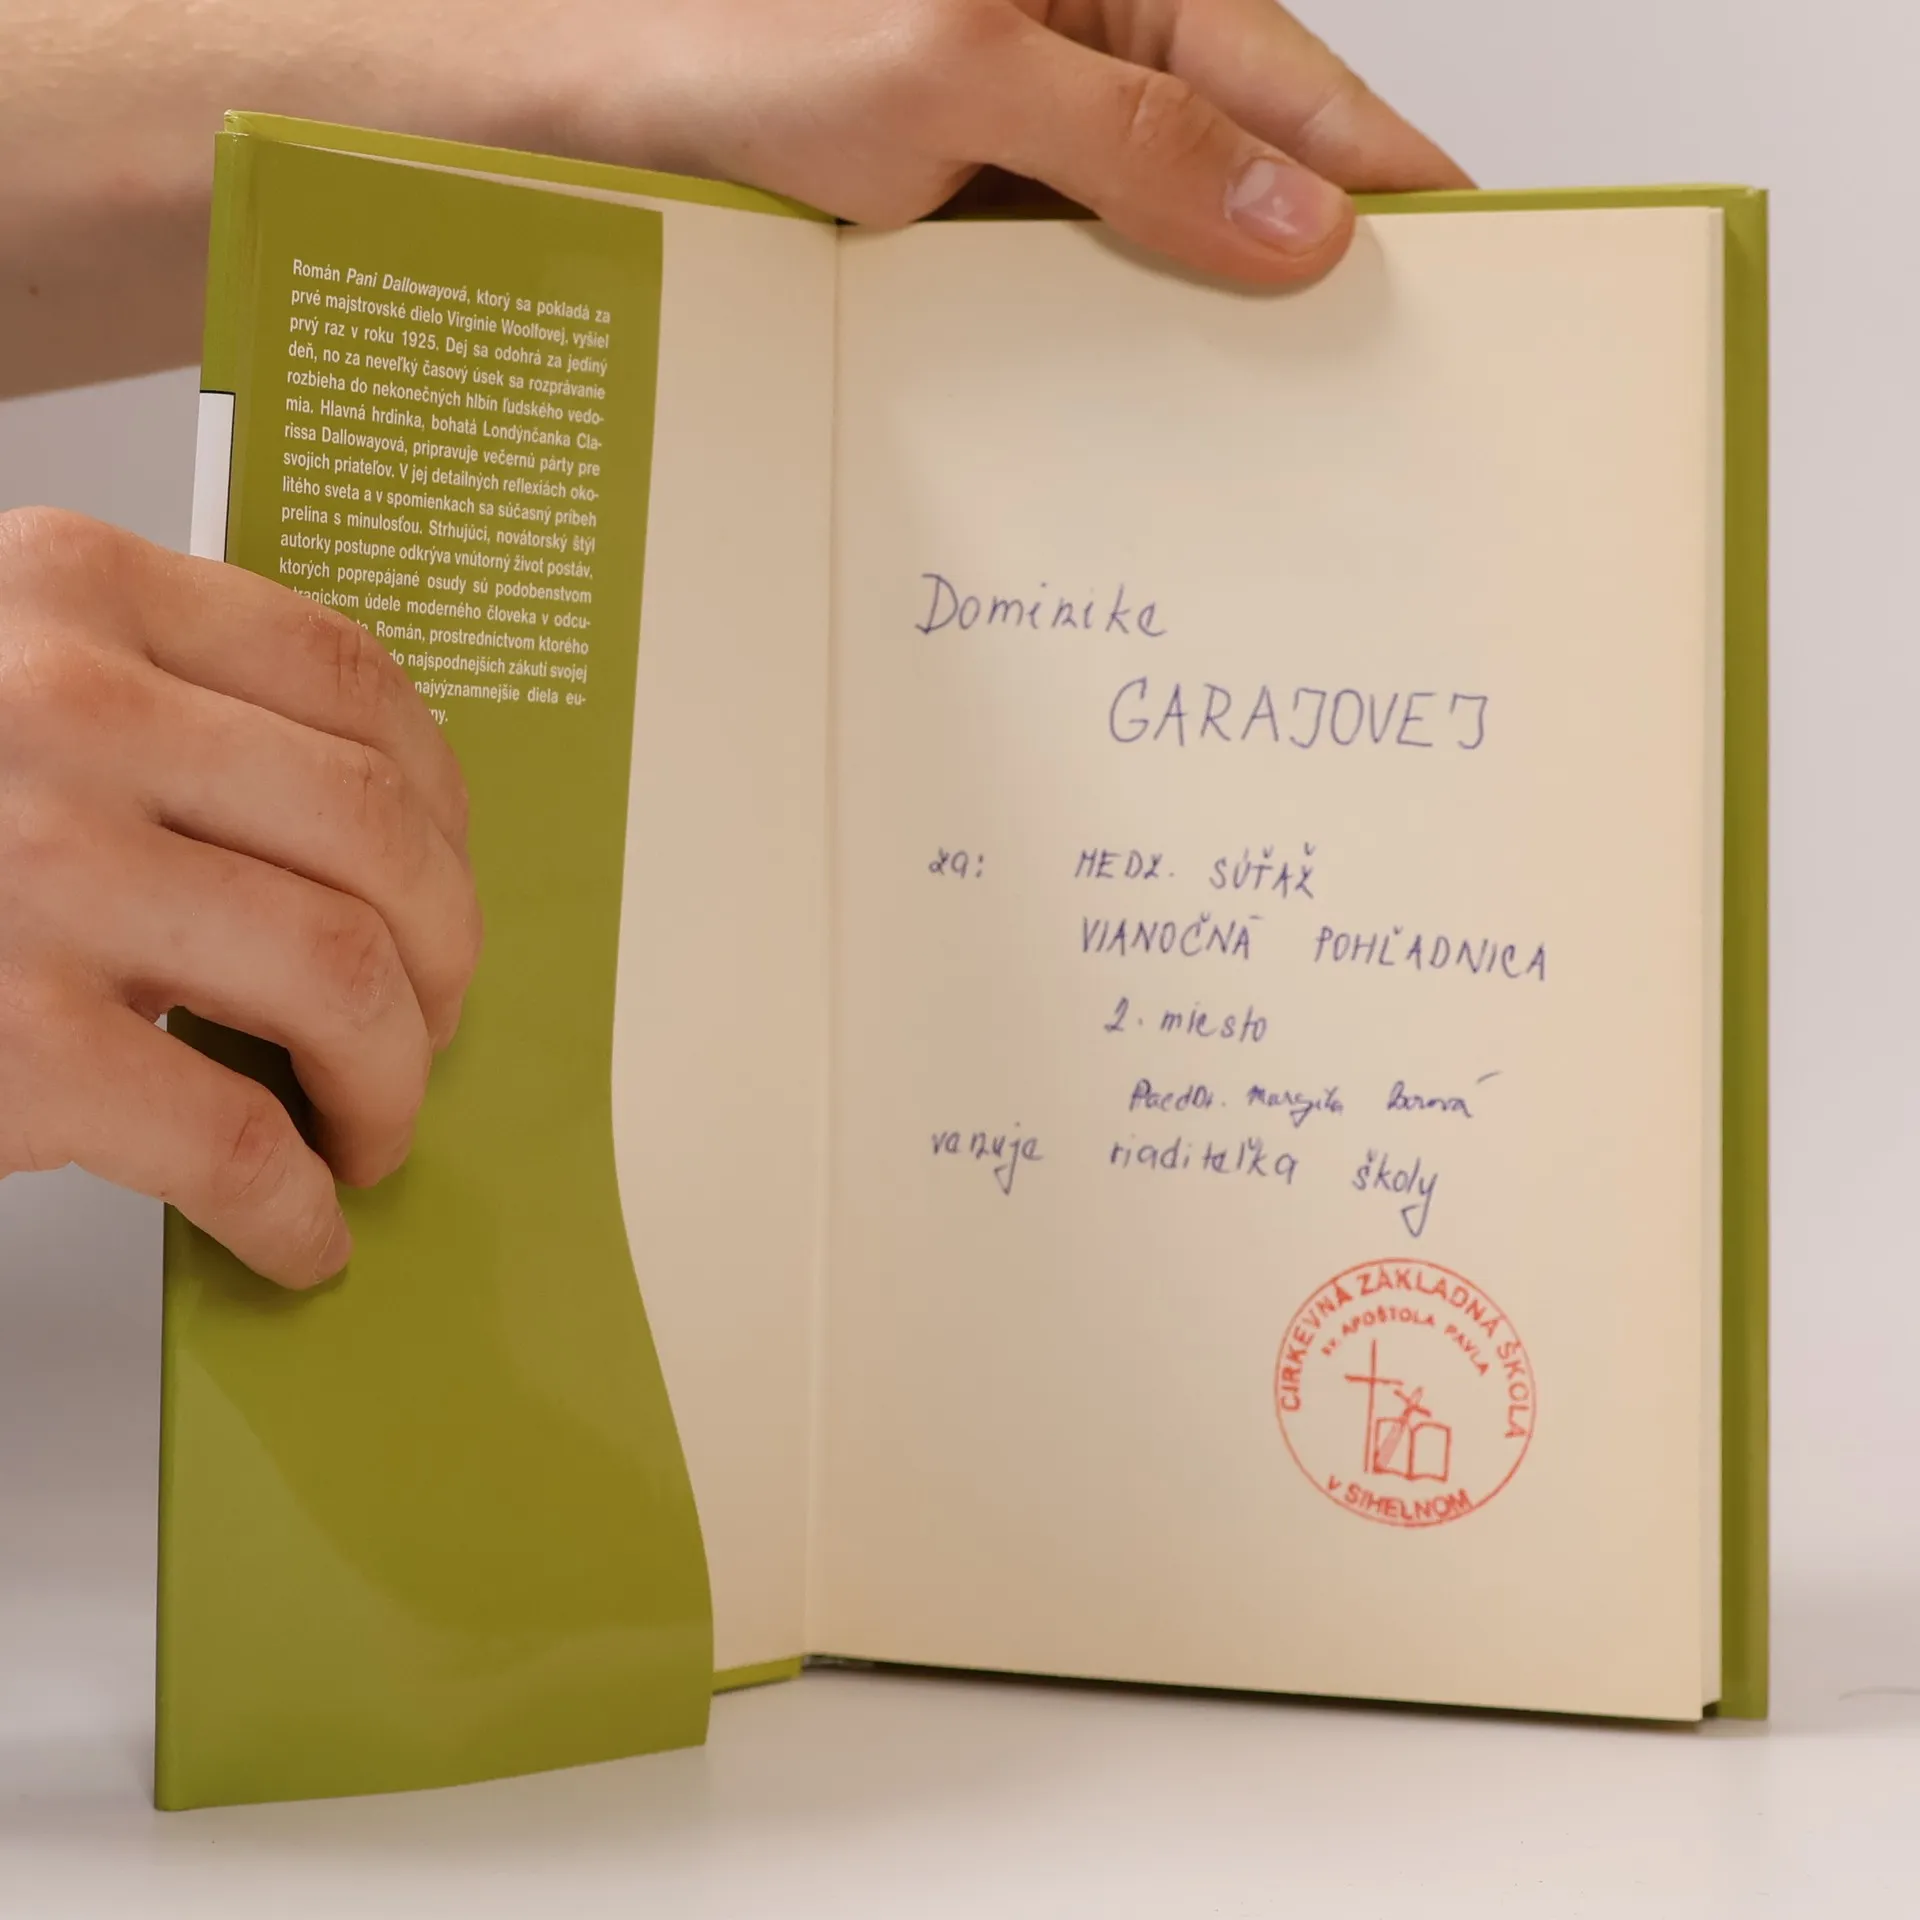 Román Pani Dallowayová, ktorý sa pokladá za
prvé majstrovské dielo Virginie Woolfovej, vyšiel
prvý raz v roku 1925. Dej sa odohrá za jediný
deň, no za neveľký časový úsek sa rozprávanie
rozbieha do nekonečných hlbín ľudského vedo-
mia. Hlavná hrdinka, bohatá Londýnčanka Cla-
rissa Dallowayová, pripravuje večernú párty pre
svojich priateľov. V jej detailných reflexiách oko-
litého sveta a v spomienkach sa súčasný príbeh
prelína s minulosťou. Strhujúci, novátorský štýl
autorky postupne odkrýva vnútorný život postáv,
ktorých poprepájané osudy sú podobenstvom
tragickom údele moderného človeka v odcu-
Román, prostredníctvom ktorého
do najspodnejších zákutí svojej
najvýznamnejšie diela eu-
ny.
Dominike
GARAJOVEJ
za: MEDZ. SÚŤAŽ
VIANOČNÁ POHĽADNICA
2. miesto
PaedDr. Margita
venuje riaditeľka školy
CIRKEVNÁ ZÁKLADNÁ ŠKOLA
SV. APOŠTOLA PAVLA
v SIHELNOM